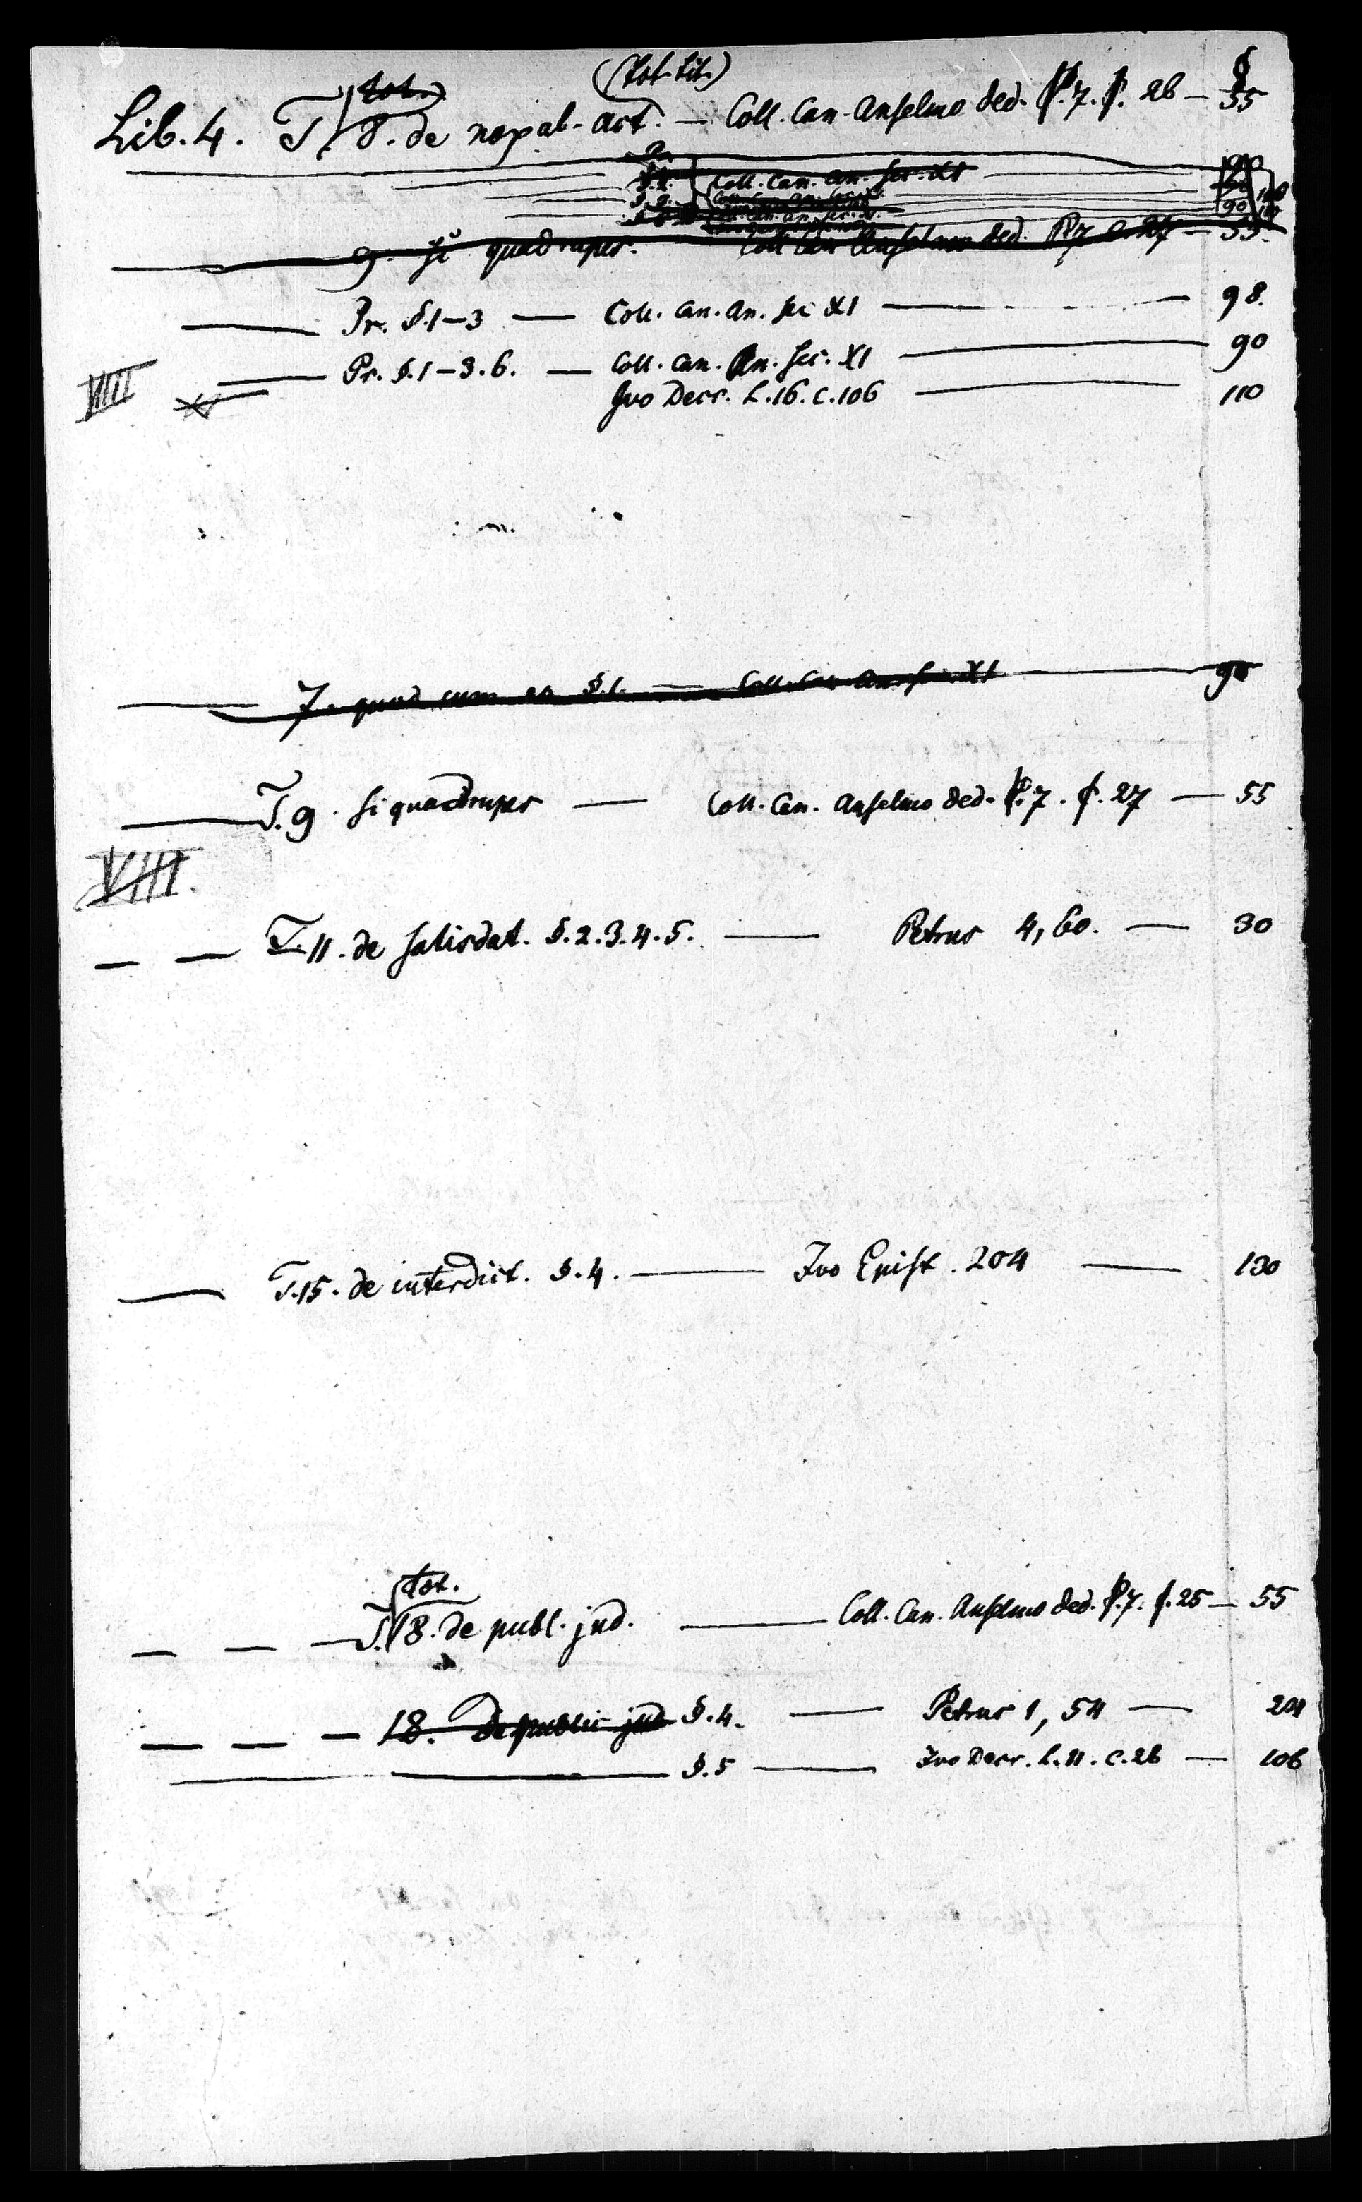 (tot. tit.) §
tot.
Lib. 4. T. 8. de noxal. act. — Coll. Can. Anselmo ded. P. 7. c. 26 — 55
Coll. Can. an. sec. XI
9. si quadrupes. Coll Can Anselmo ded. P 7 c. 27 — 55.
Pr. §. 1–3 — Coll. can. an. sec XI — 98.
Pr. §. 1–3. 6. — Coll. can. An. sec. XI — 90
VIII Ivo Decr. L. 16. c. 106 — 110
7. quod cum eo §. 1. — Coll. Can. An. sec. XI — 90
T. 9. si quadrupes — Coll. Can. Anselmo ded. P. 7. c. 27 — 55
VIII.
T. 11. de satisdat. §. 2. 3. 4. 5. — Petrus 4, 60. — 30
T. 15. de interdict. §. 4. — Ivo Epist. 204 — 130
tot.
T. 18. de publ. jud. — Coll. Can. Anselmo ded. P. 7. c. 25 — 55
18. De public jud §. 4. — Petrus 1, 54 — 24
§. 5 — Ivo Decr. L. 11. c. 26 — 106